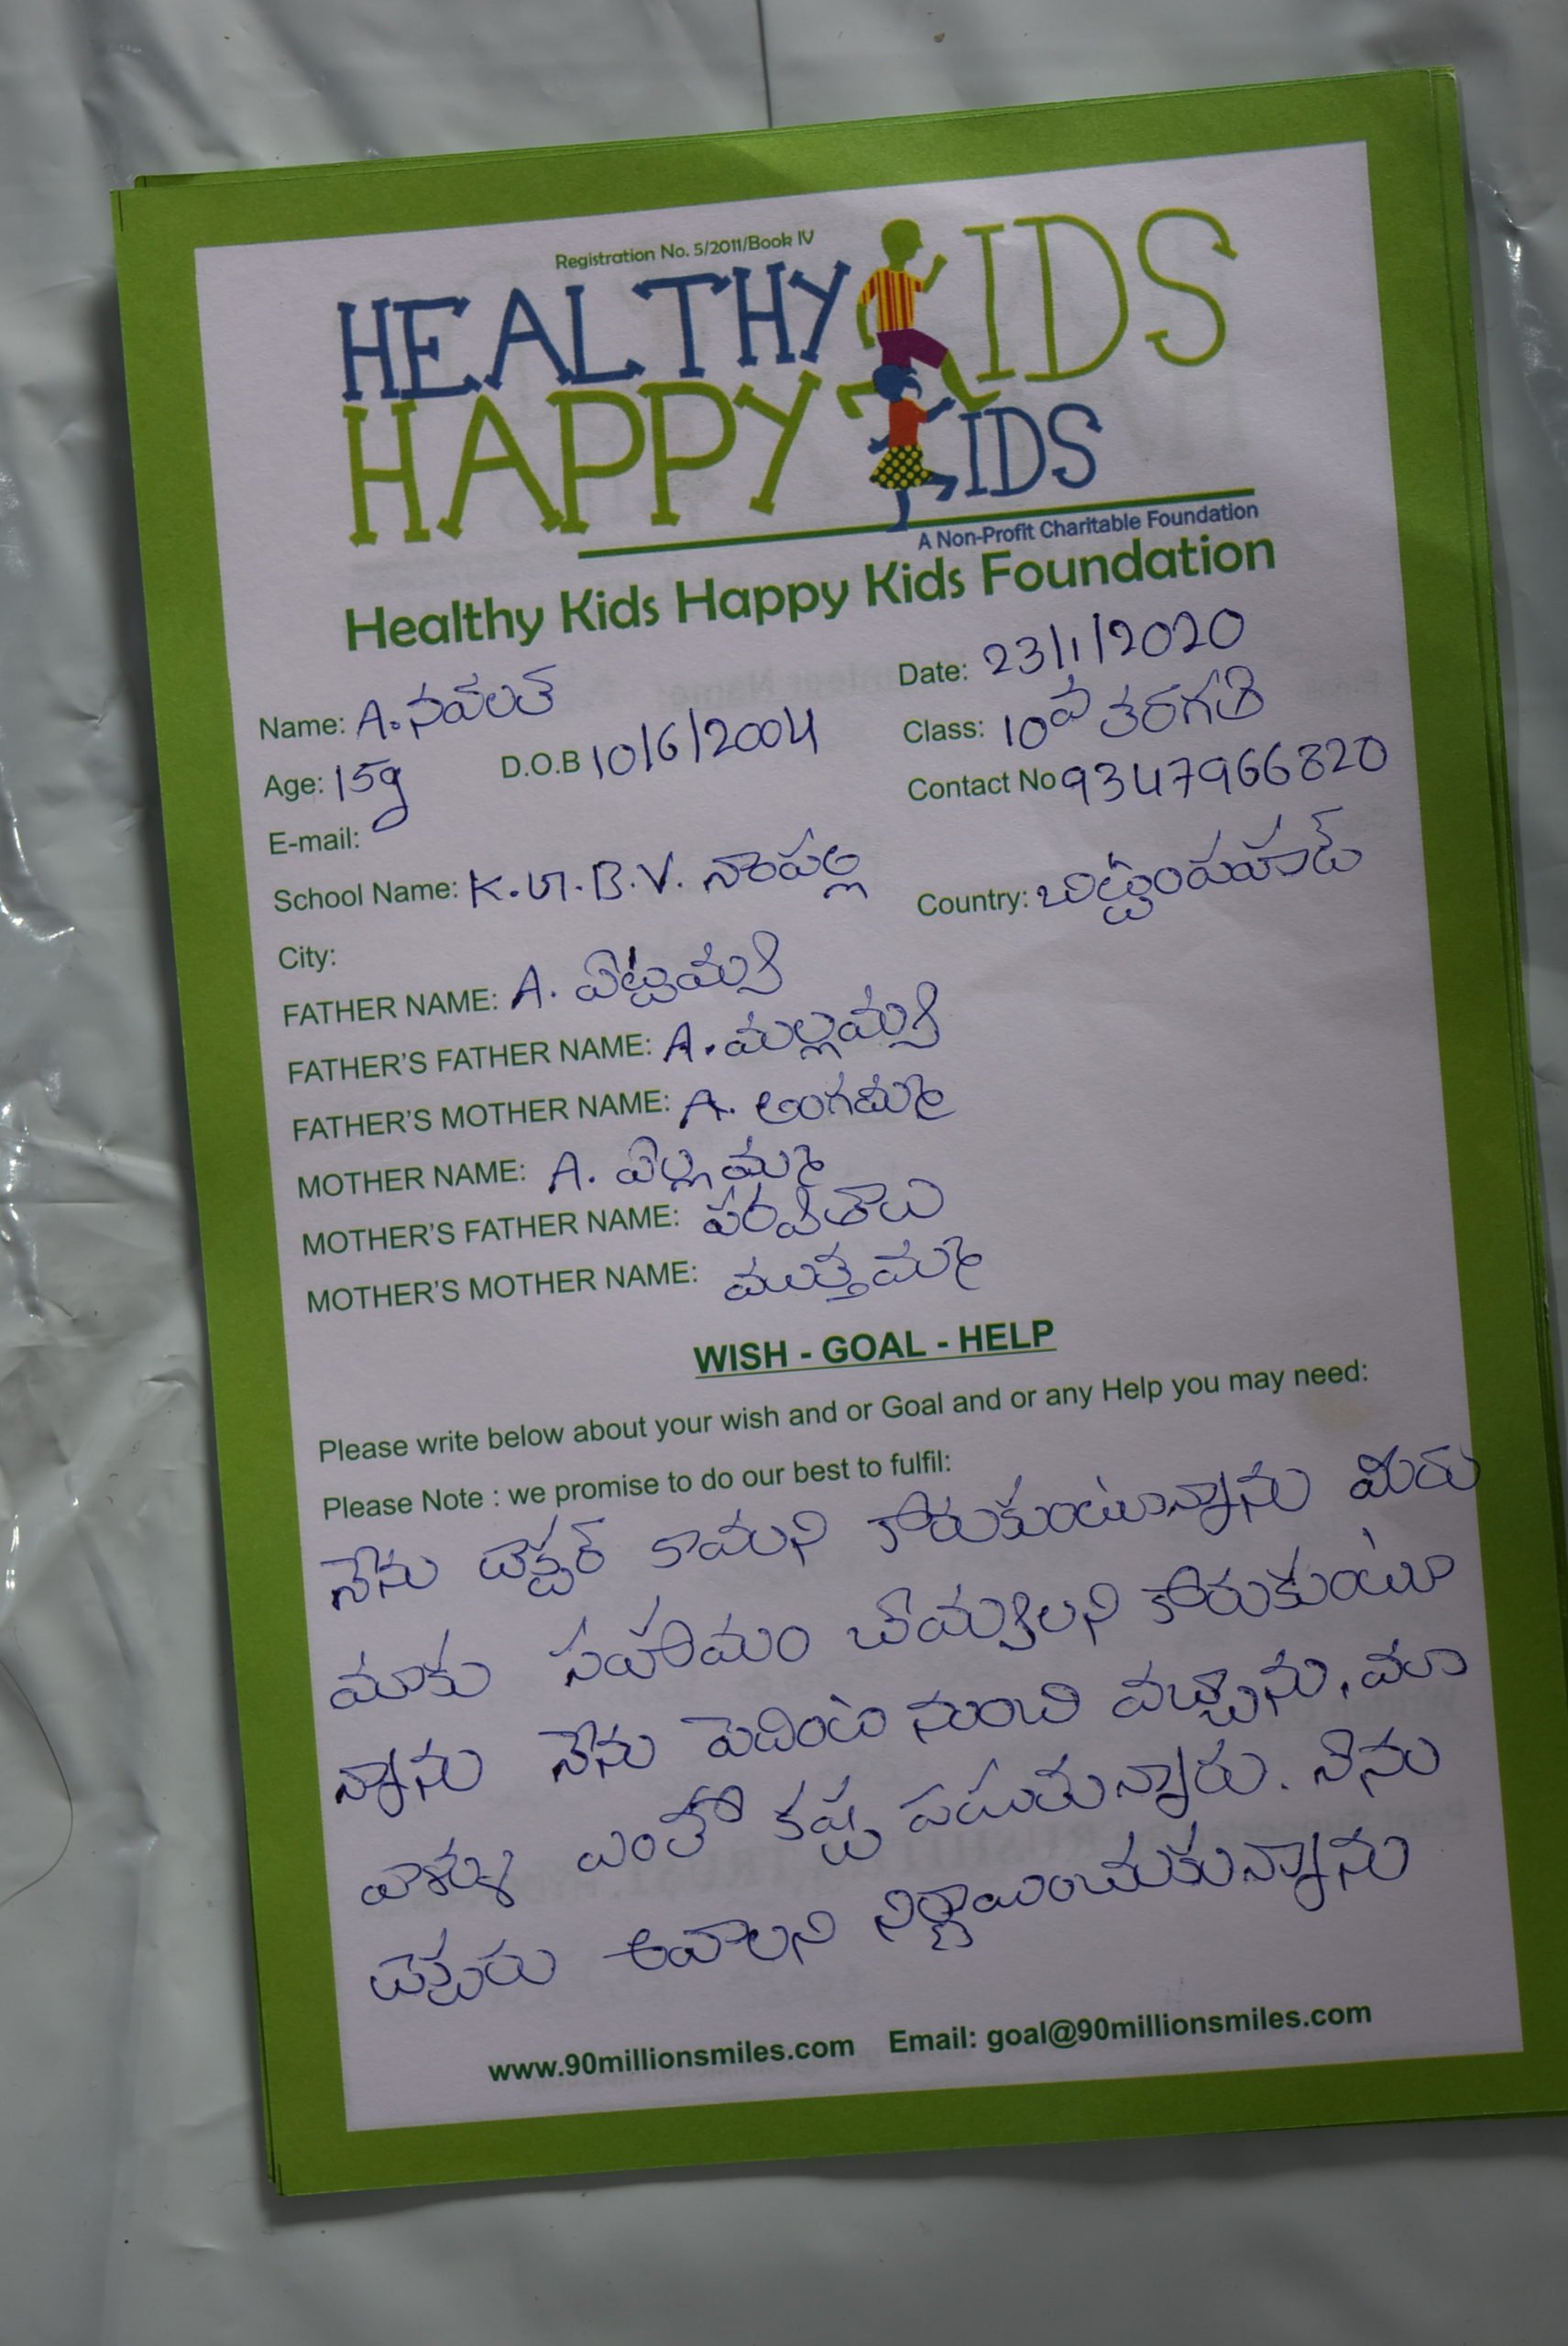 Registration No. 5/2011/Book IV
HEALTHY KIDS
HAPPY KIDS
A Non-Profit Charitable Foundation
Healthy Kids Happy Kids Foundation
Name: A. నవలత్ Date: 23/1/2020
Age: 15 D.O.B 10/6/2004 Class: 10వ తరగతి
E-mail: Contact No 9347966820
School Name: K.G.B.V. నాంపల్ల Country:
City:
FATHER NAME: A.
FATHER'S FATHER NAME: A.
FATHER'S MOTHER NAME: A. అంగమ్మ
MOTHER NAME: A. ఏల్లమ్మ
MOTHER'S FATHER NAME: పర్వతాలు
MOTHER'S MOTHER NAME: ముత్తమ్మ
WISH - GOAL - HELP
Please write below about your wish and or Goal and or any Help you may need:
Please Note : we promise to do our best to fulfil:
నేను కావని కోరుకుంటూన్నాను మీరు
మాకు సహాయం కోరుకుంటూ
న్నాను నేను పెదింటి నుంచి వచ్చాను. మా
వాళ్ళు ఎంతో కష్ట పడుతున్నారు. నేను
అవాలని నిర్ణాయించుకున్నాను
www.90millionsmiles.com Email: goal@90millionsmiles.com